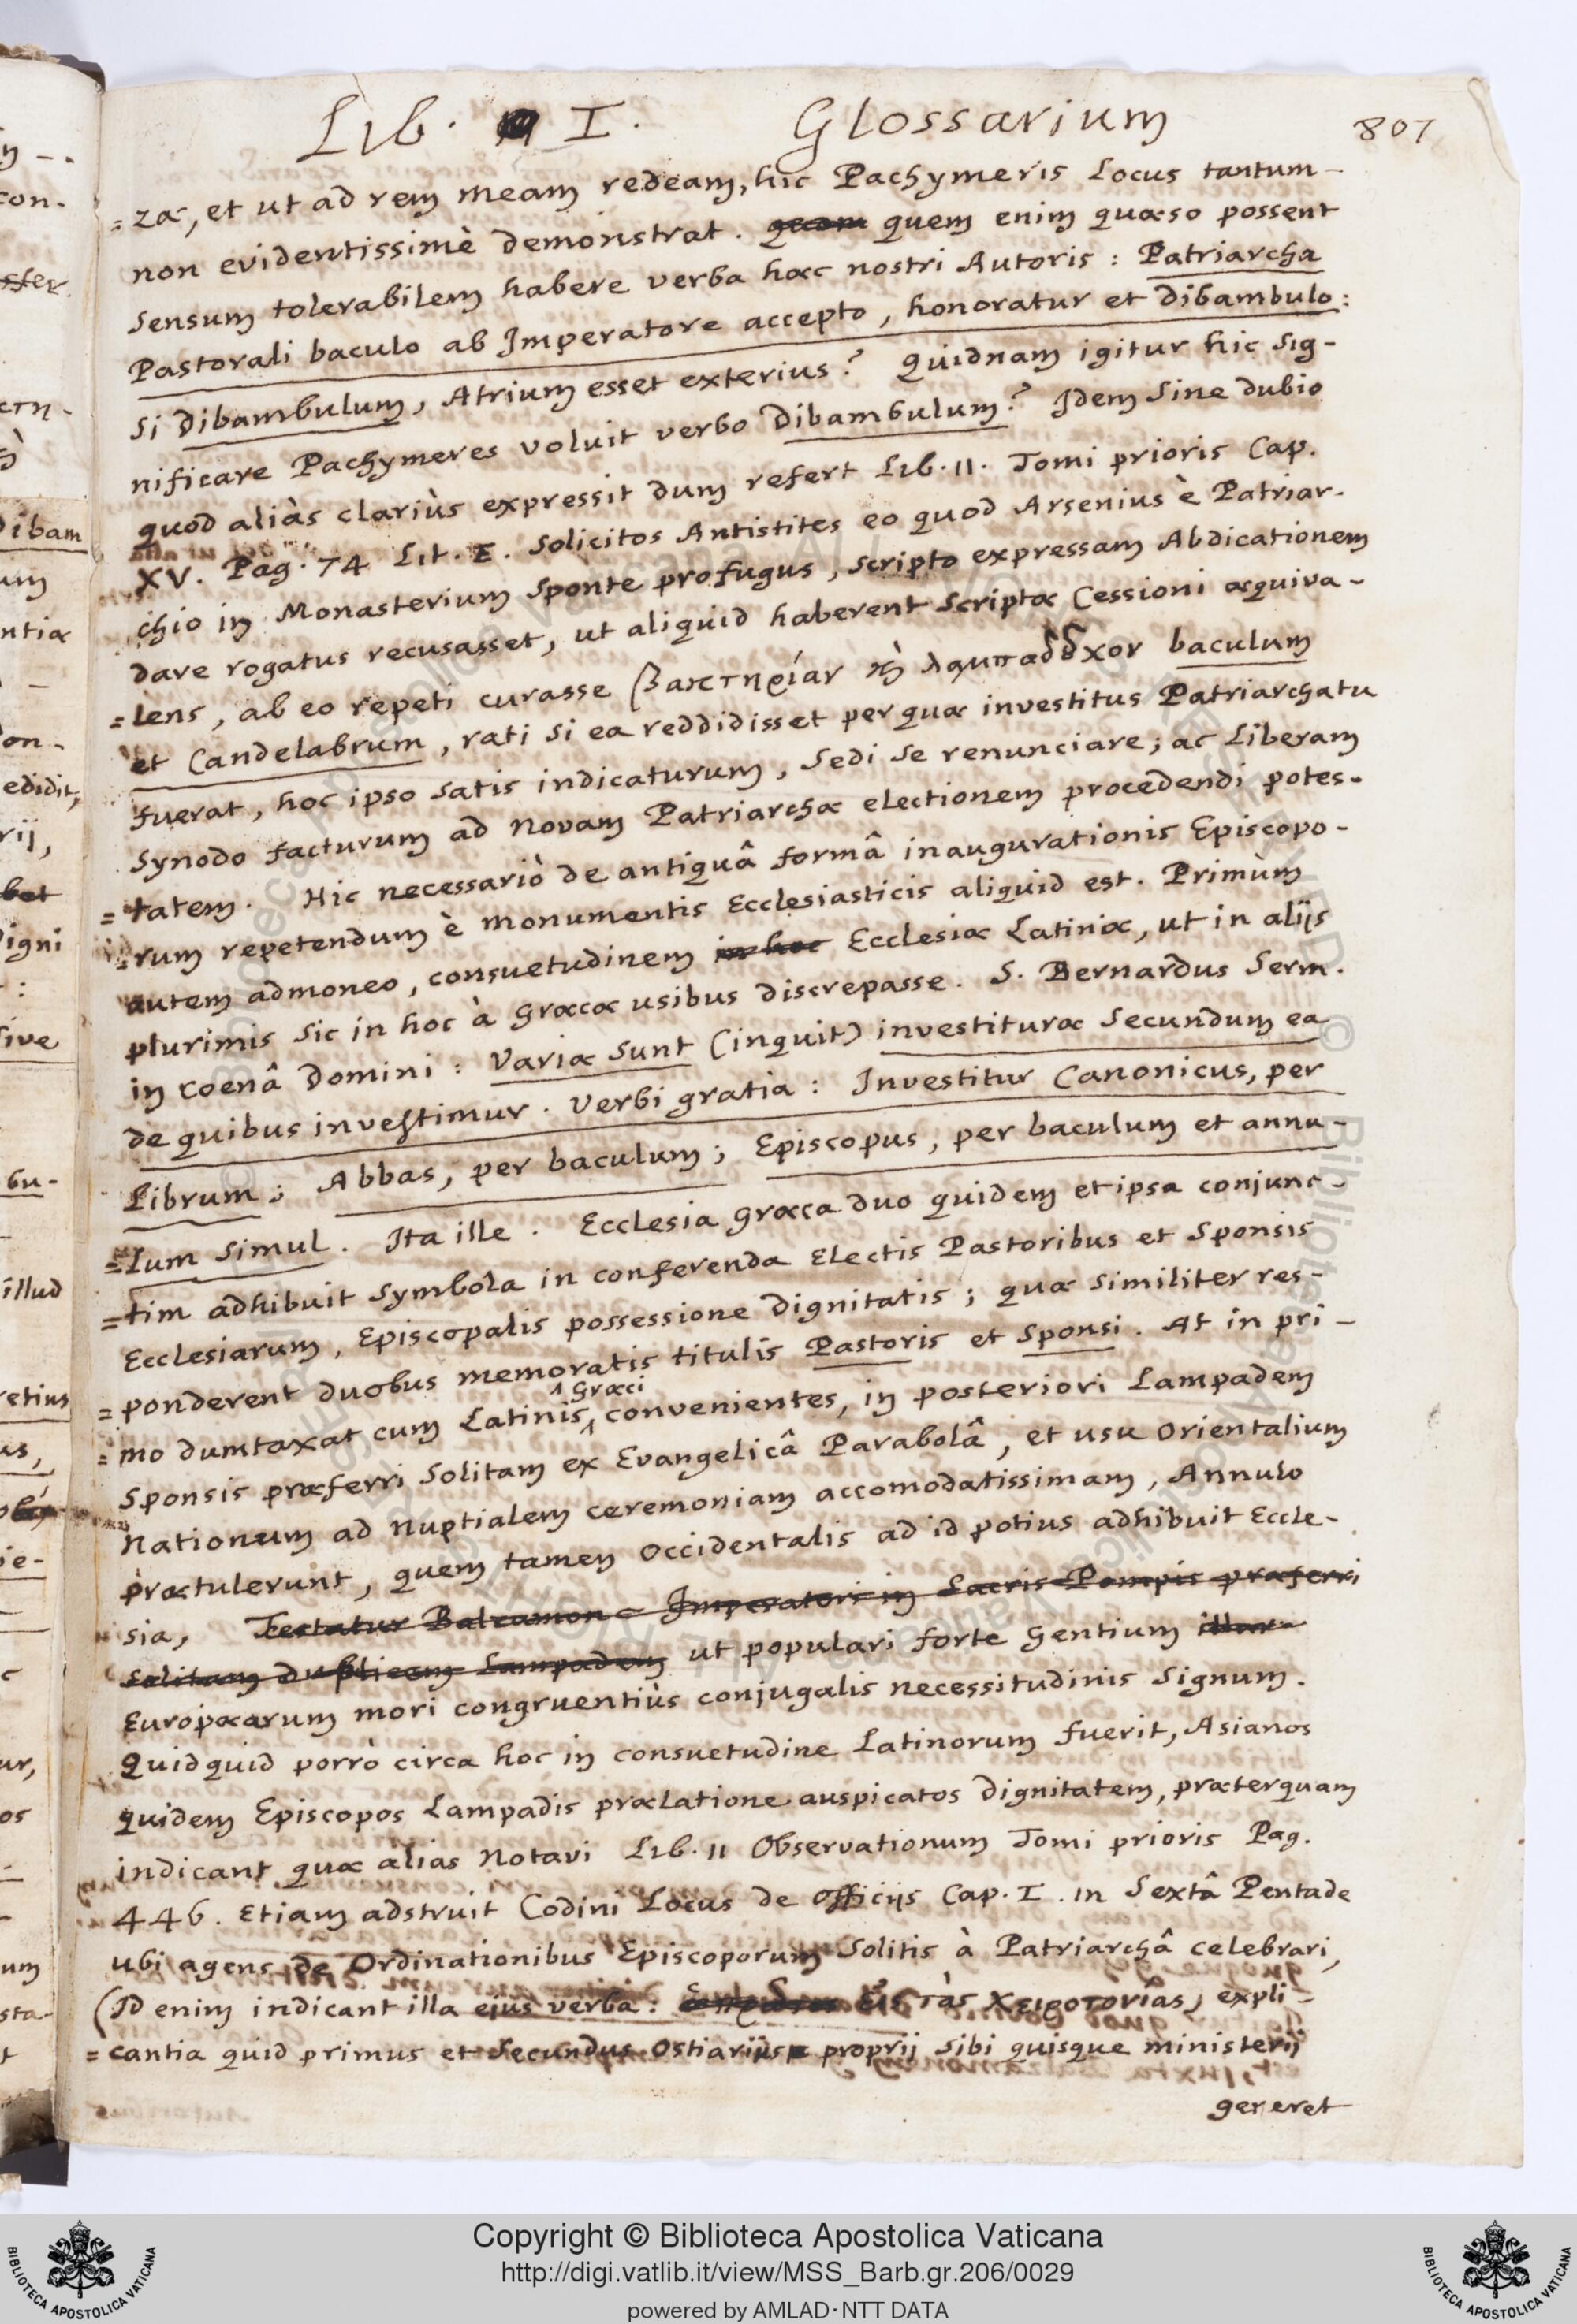 Lib. I. Glossarium 807
=za, et ut ad rem meam redeam, hic Pachymeris Locus tantum-
non evidentissimè demonstrat. quem enim quæso possent
sensum tolerabilem habere verba hæc nostri Autoris: Patriarcha
Pastorali baculo ab Imperatore accepto, honoratur et dibambulo:
si dibambulum, Atrium esset exterius? Quidnam igitur hic sig-
nificare Pachymeres voluit verbo Dibambulum? Idem sine dubio
quod aliàs clariùs expressit dum refert Lib. II. Tomi prioris Cap.
XV. Pag. 74 Lit. E. solicitos Antistites eo quod Arsenius è Patriar-
chio in Monasterium sponte profugus, scripto expressam Abdicationem
dare rogatus recusasset, ut aliquid haberent scriptæ Cessioni æquiva-
=lens, ab eo repeti curasse βακτηρίαν κὴ λαμπαδȣ̃χον baculum
et Candelabrum, rati si ea reddidisset per quæ investitus Patriarchatu
fuerat, hoc ipso satis indicaturum, sedi se renunciare; ac Liberam
synodo facturum ad novam Patriarchæ electionem procedendi potes-
=tatem. Hic necessariò de antiquâ formâ inaugurationis Episcopo-
=rum repetendum è monumentis Ecclesiasticis aliquid est. Primùm
autem admoneo, consuetudinem in hoc Ecclesiæ Latinæ, ut in alijs
plurimis sic in hoc à græcæ usibus discrepasse. S. Bernardus Serm.
in coenâ Domini: Variæ sunt (inquit) investituræ secundum ea
de quibus investimur. Verbi gratia: Investitur Canonicus, per
Librum; Abbas, per baculum; Episcopus, per baculum et annu-
=lum simul. Ita ille. Ecclesia græca duo quidem et ipsa conjunc-
=tim adhibuit symbola in conferenda Electis Pastoribus et Sponsis
Ecclesiarum, Episcopalis possessione dignitatis; quæ similiter res-
=ponderent duobus memoratis titulis Pastoris et Sponsi. At in pri-
=mo dumtaxat cum Latinis, Græci convenientes, in posteriori Lampadem
sponsis præferri solitam ex Evangelicâ Parabolâ, et usu Orientalium
Nationum ad Nuptialem ceremoniam accomodatissimam, Annulo
prætulerunt, quem tamen occidentalis ad id potius adhibuit Eccle-
sia, Testatur Balzamon Imperatori in Sacris Pompis præferri
solitam duplicem Lampadem ut populari forte gentium
Europæarum mori congruentiùs conjugalis necessitudinis signum.
Quidquid porrò circa hoc in consuetudine Latinorum fuerit, Asianos
quidem Episcopos Lampadis prælatione auspicatos dignitatem, præterquam
indicant quæ alias Notavi Lib. II Observationum Tomi prioris Pag.
446. Etiam adstruit Codini Locus de officijs Cap. I. in Sextâ Pentade
ubi agens de Ordinationibus Episcoporum Solitis à Patriarchâ celebrari,
(Id enim indicant illa ejus verba: Εἰς τὰς χειροτονίας) expli-
=cantia quid primus et secundus Ostiarijs proprij sibi quisque ministerij
gereret
Copyright © Biblioteca Apostolica Vaticana
http://digi.vatlib.it/view/MSS_Barb.gr.206/0029
powered by AMLAD·NTT DATA
BIBLIOTECA APOSTOLICA VATICANA
BIBLIOTECA APOSTOLICA VATICANA